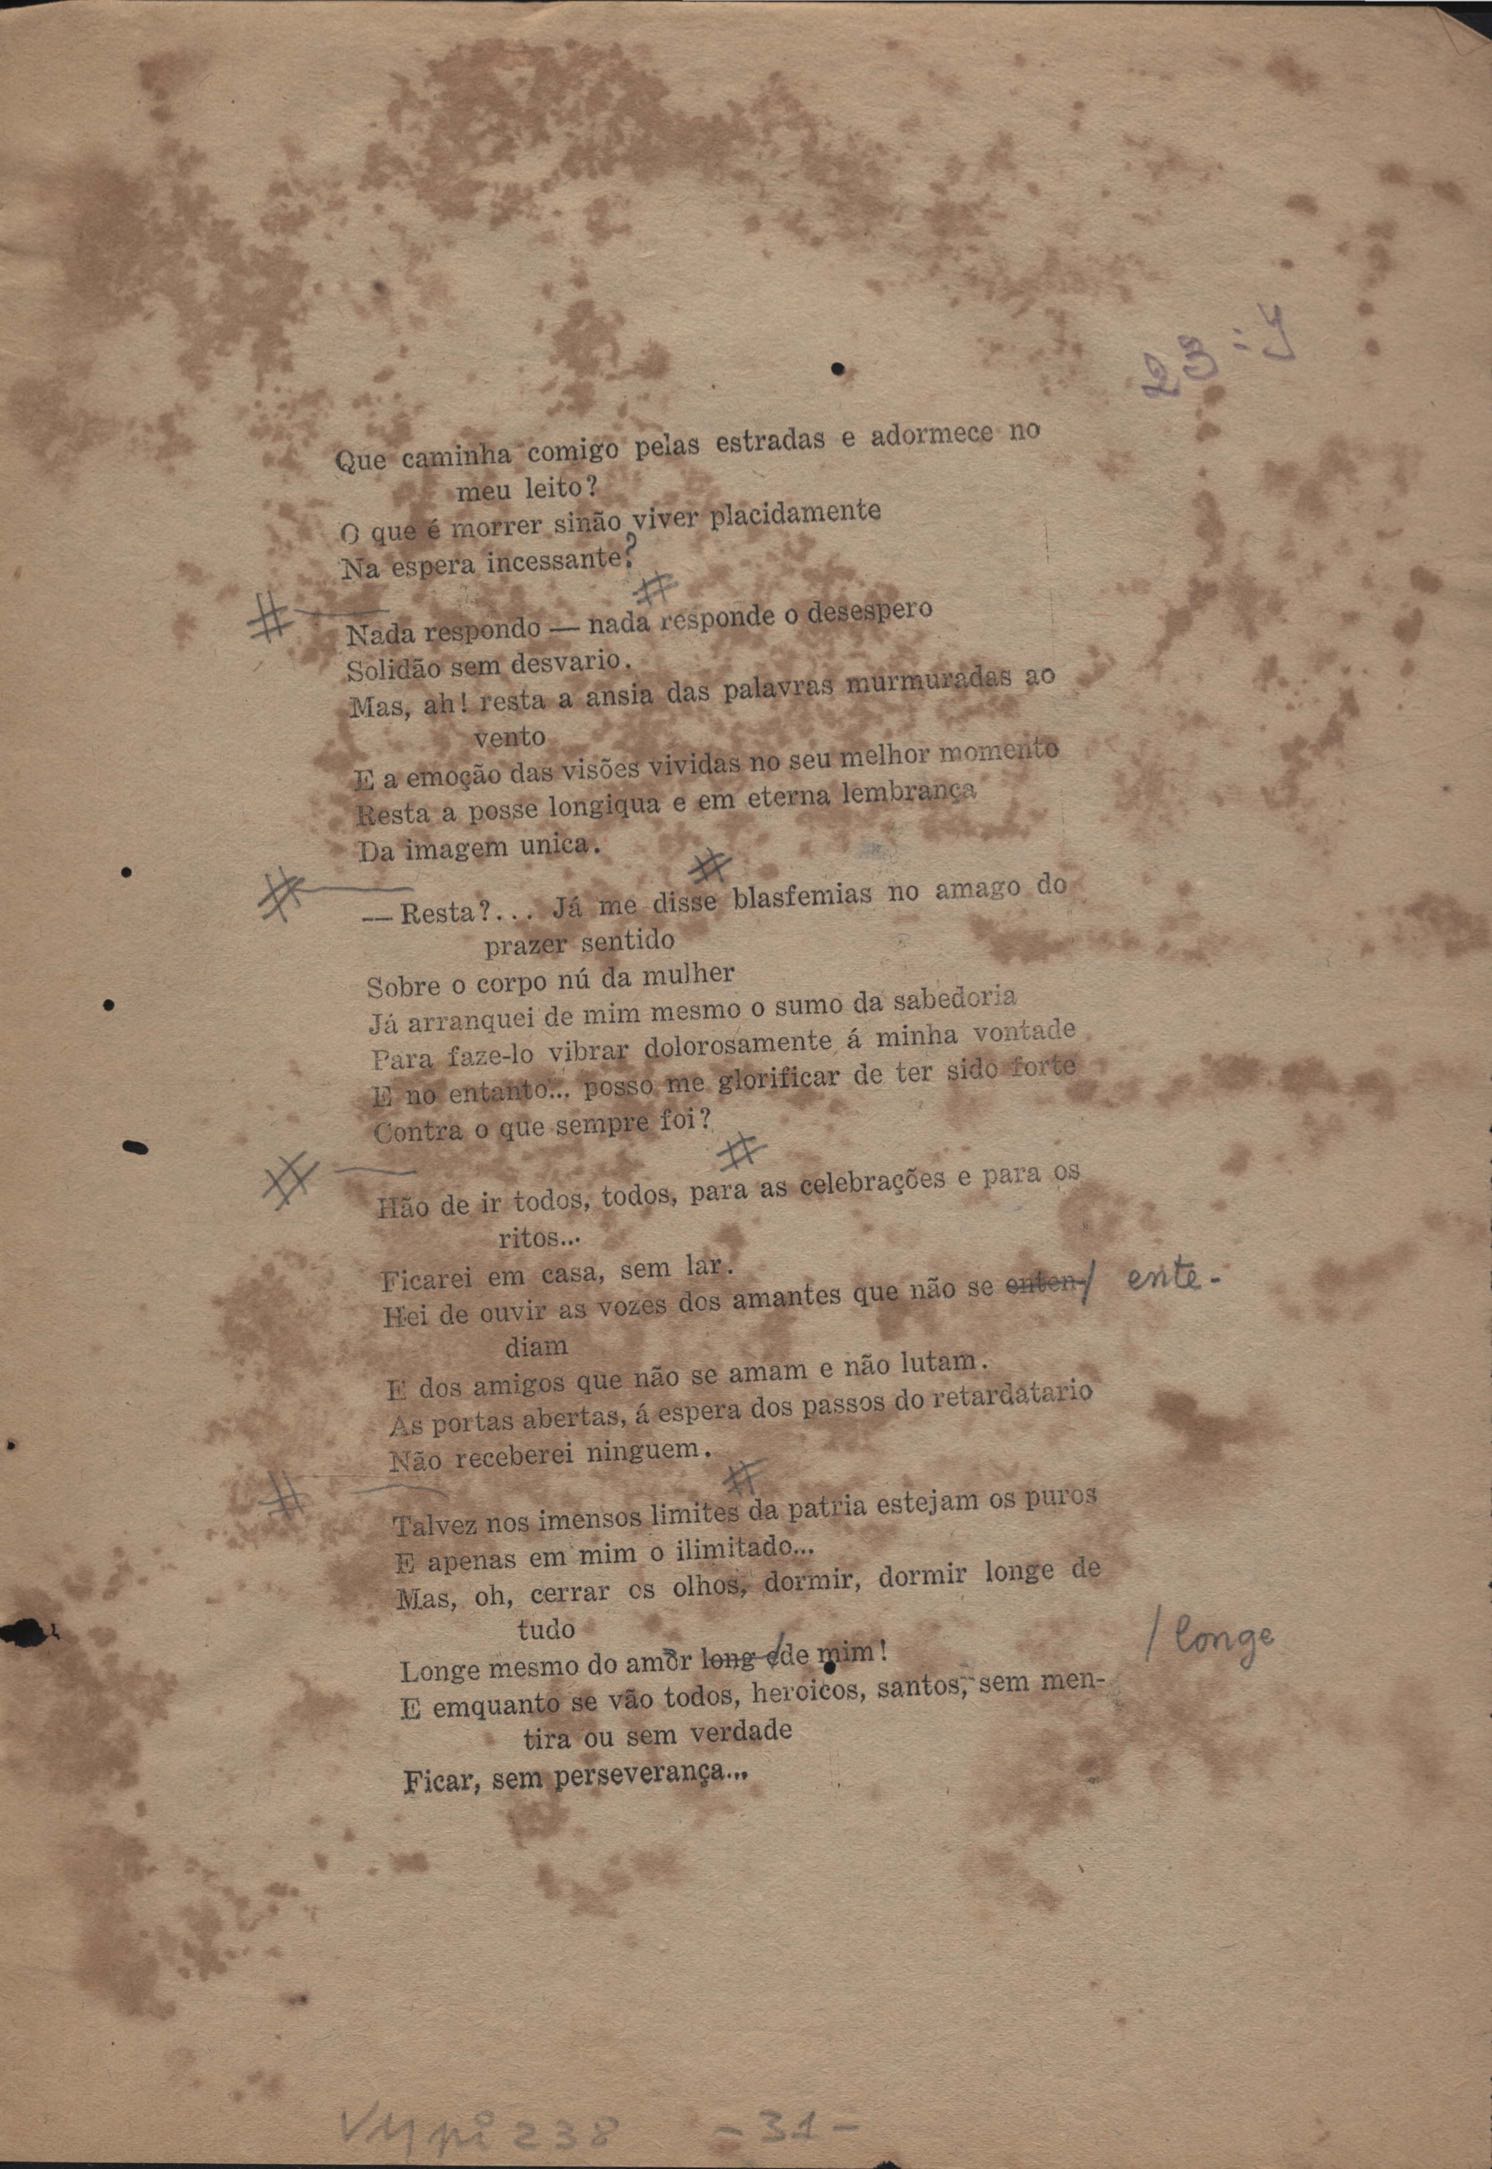 Que caminha comigo pelas estradas e adormece no
meu leito?
O que é morrer sinão viver placidamente
Na espera incessante?
#
#
Nada respondo — nada responde o desespero
Solidão sem desvario.
Mas, ah! resta a ansia das palavras murmuradas ao
vento
E a emoção das visões vividas no seu melhor momento
Resta a posse longiqua e em eterna lembrança
Da imagem unica.
#
#
— Resta?... Já me disse blasfemias no amago do
prazer sentido
Sobre o corpo nú da mulher
Já arranquei de mim mesmo o sumo da sabedoria
Para faze-lo vibrar dolorosamente á minha vontade
E no entanto... posso me glorificar de ter sido forte
Contra o que sempre foi?
#
#
Hão de ir todos, todos, para as celebrações e para os
ritos...
Ficarei em casa, sem lar.
Hei de ouvir as vozes dos amantes que não se enten-/ ente-
diam
E dos amigos que não se amam e não lutam.
As portas abertas, á espera dos passos do retardatario
Não receberei ninguem.
#
#
Talvez nos imensos limites da patria estejam os puros
E apenas em mim o ilimitado...
Mas, oh, cerrar os olhos, dormir, dormir longe de
tudo
Longe mesmo do amor long e/de mim! / longe
E emquanto se vão todos, heroicos, santos, sem men-
tira ou sem verdade
Ficar, sem perseverança...
238 -31-